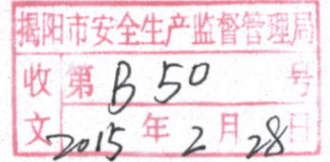 揭阳市安全生产监督管理局
收文 第 B 50 号
2015 年 2 月 28 日